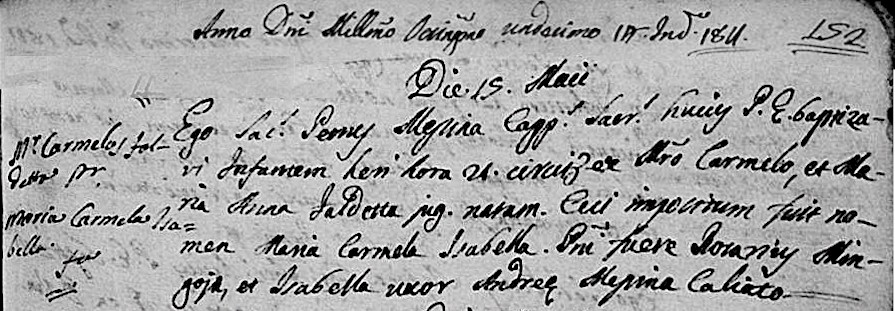 Anno Dnī Millmo Octingmo undecimo 14 Indᵉ 1811. 152
Die 15. Maii
Mʳ Carmelo Fal-
detta pr.
Maria Carmela Isa=
bella.
Ego Sacˢ Petrus Messina Cappˢ Sacrˡ huius P. E. baptiza-
vi Infantem heri hora 21. circiter ex Mro Carmelo, et Ma-
ria Anna Faldetta jug. natam. Cui impositum fuit no-
men Maria Carmela Isabella. Pnī fuere Rosarius Min-
goja, et Isabella uxor Andreę Messina Caliato